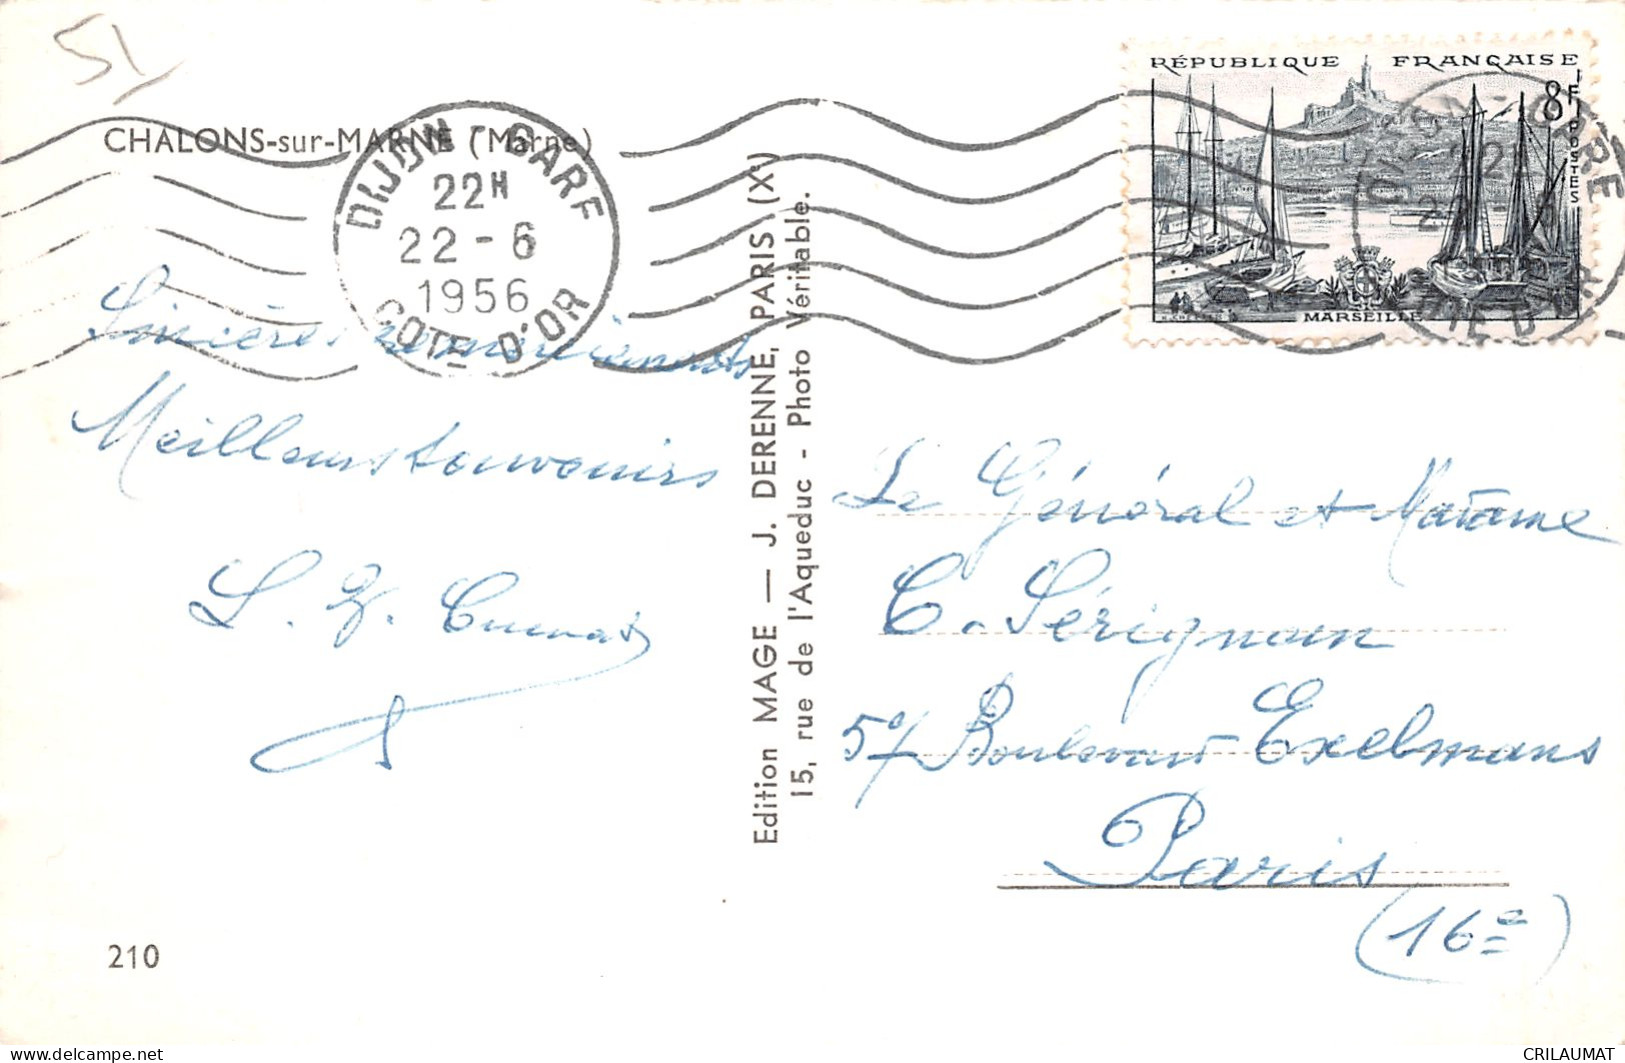 51
CHALONS-sur-MARNE (Marne)
DIJON - GARE
22H
22 - 6
1956
COTE D'OR
RÉPUBLIQUE FRANÇAISE
8F
POSTES
MARSEILLE
DIJON-GARE
Sincères remerciements
Meilleurs souvenirs
Edition MAGE — J. DERENNE, PARIS (X)
15, rue de l'Aqueduc - Photo Véritable.
Le Général et Madame
C. Sérignan
57 Boulevard Exelmans
Paris
(16e)
210
CRILAUMAT